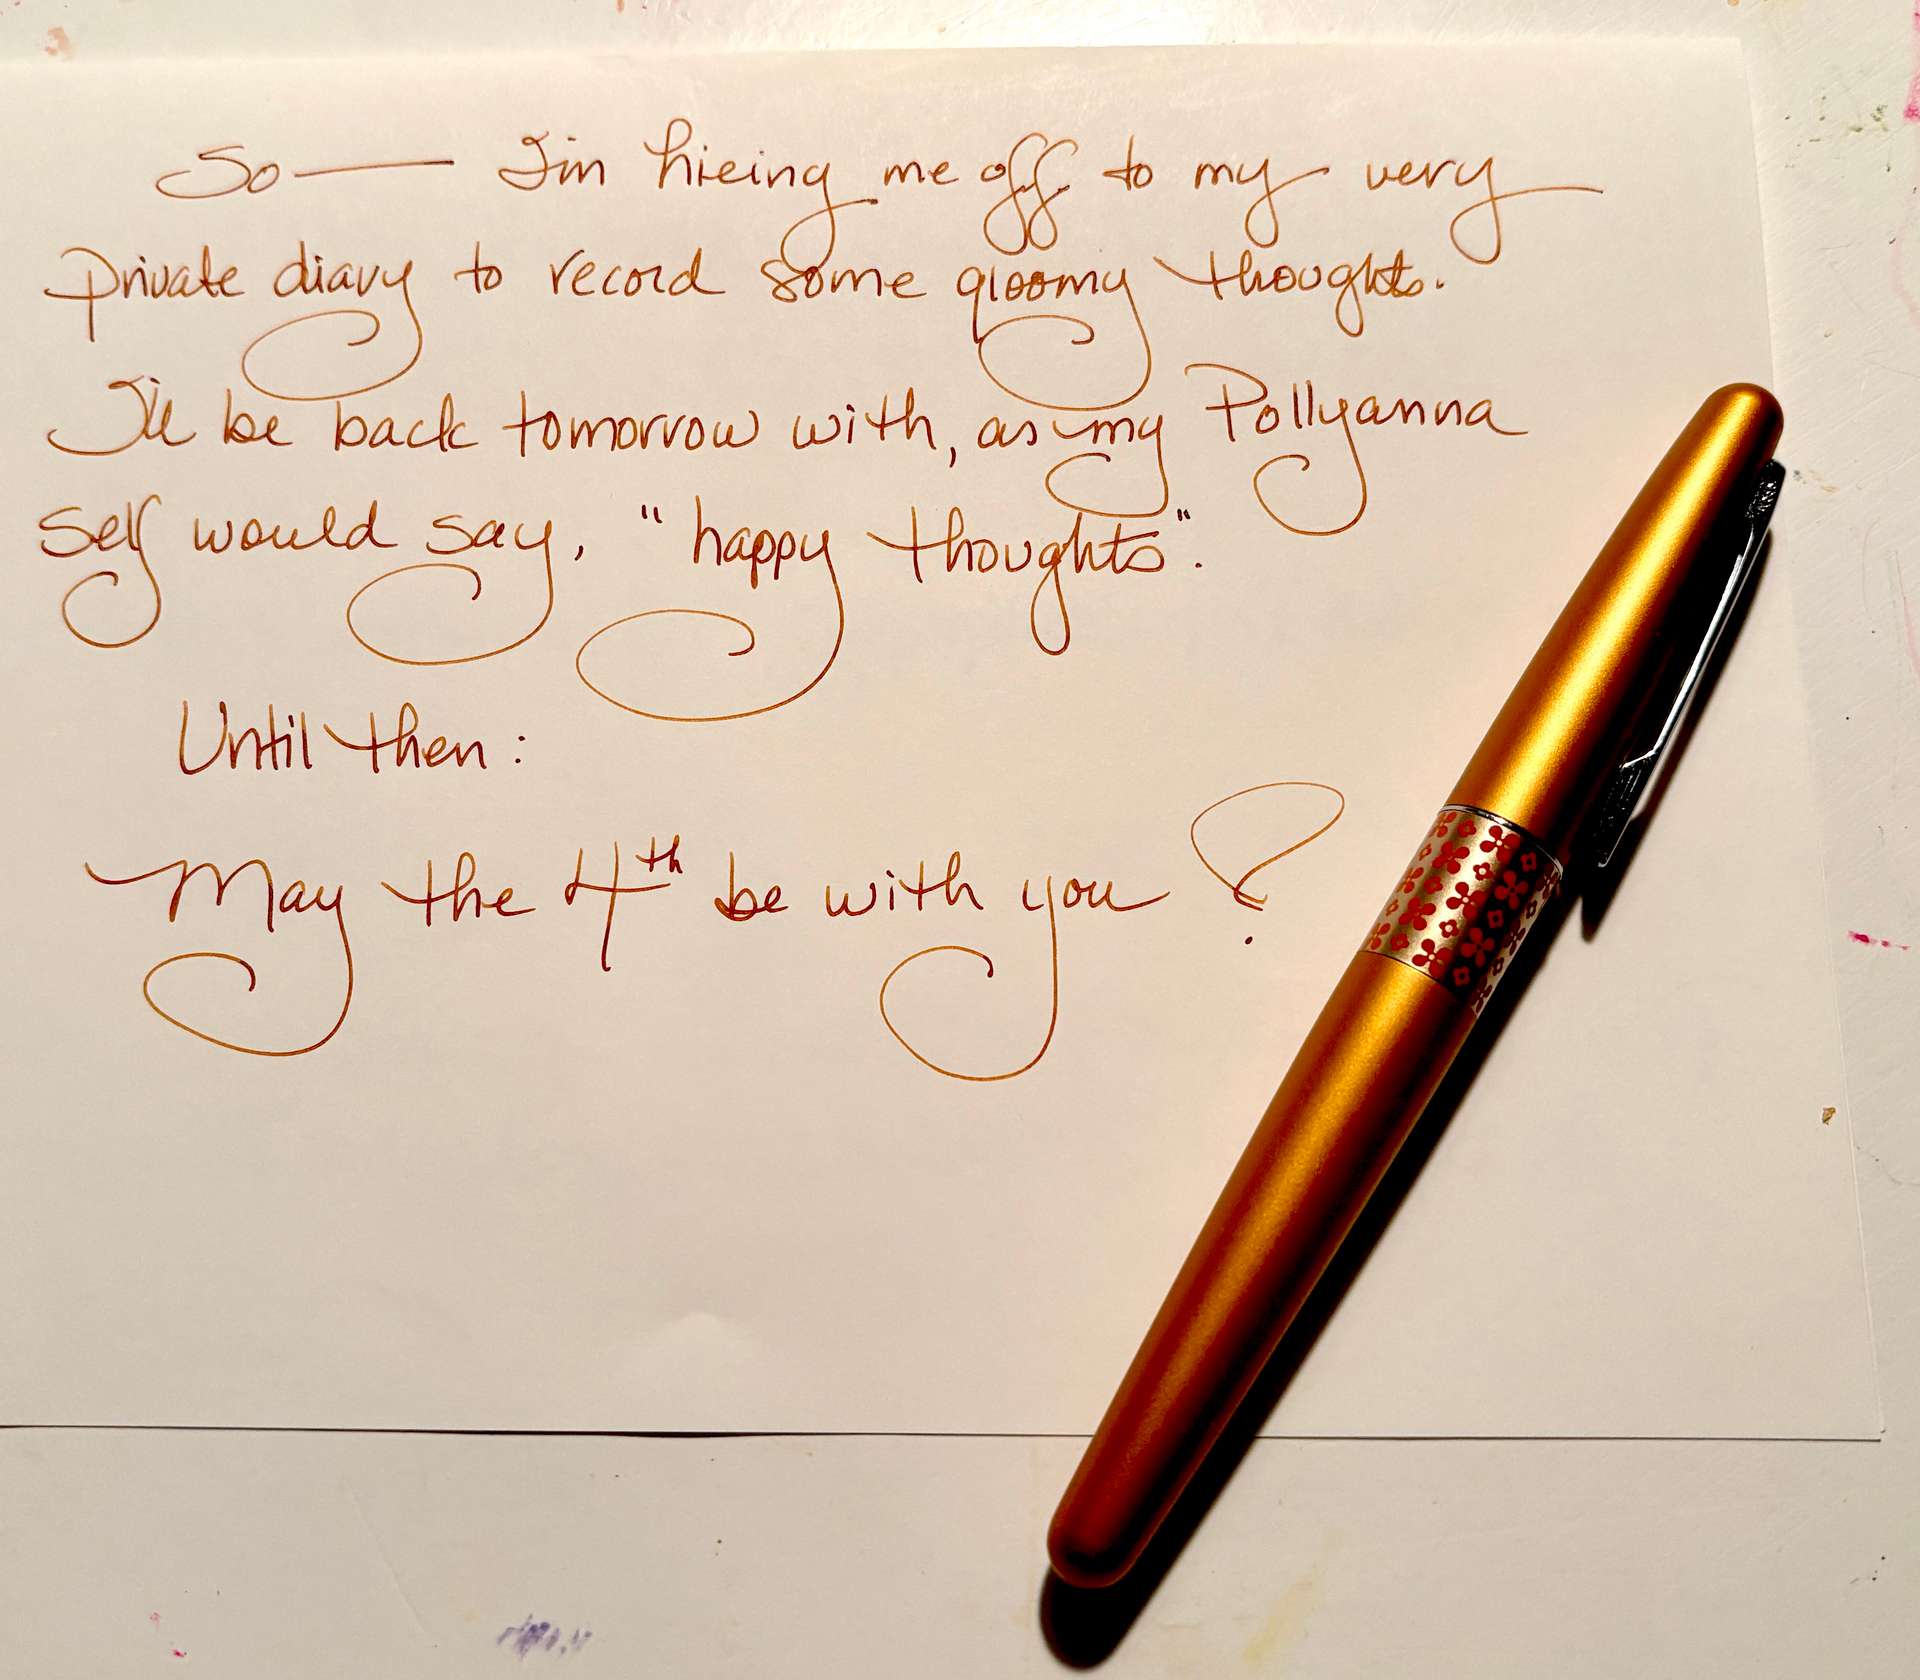 So — I'm hieing me off to my very
private diary to record some gloomy thoughts.
I'll be back tomorrow with, as my Pollyanna
self would say, "happy thoughts".
Until then:
May the 4th be with you!